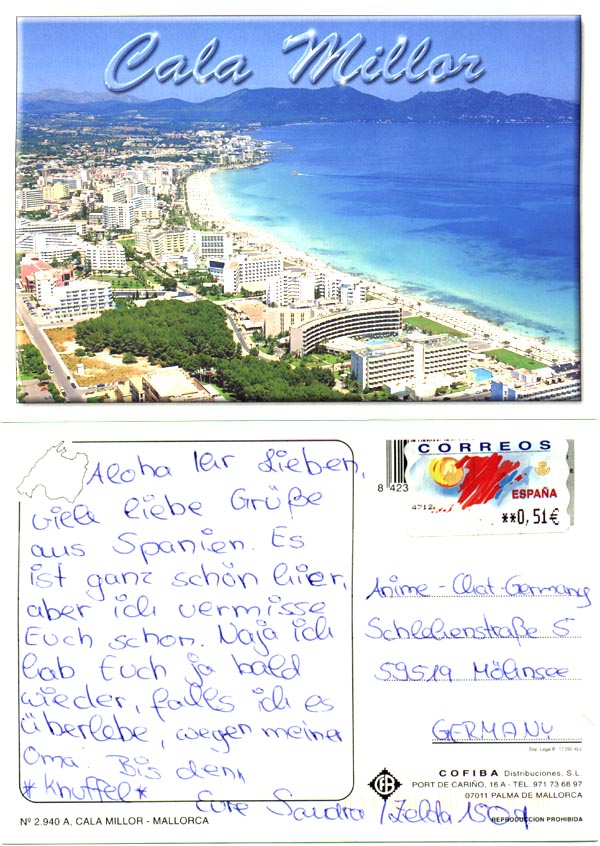 Cala Millor
Aloha Ihr Lieben,
viele liebe Grüße
aus Spanien. Es
ist ganz schön hier,
aber ich vermisse
Euch schon. Naja ich
hab Euch ja bald
wieder, falls ich es
überlebe, wegen meiner
Oma. Bis denn,
*Knuffel*
Eure Sandra / Zelda1509
CORREOS
ESPAÑA
8 423
4712
**0,51€
Anime-Chat-Germany
Schlehenstraße 5
59519 Möhnsee
GERMANY
Dep. Legal B. 17.292-XLV
COFIBA Distribuciones, S.L.
PORT DE CARIÑO, 16 A - TEL. 971 73 68 97
07011 PALMA DE MALLORCA
REPRODUCCION PROHIBIDA
Nº 2.940 A, CALA MILLOR - MALLORCA